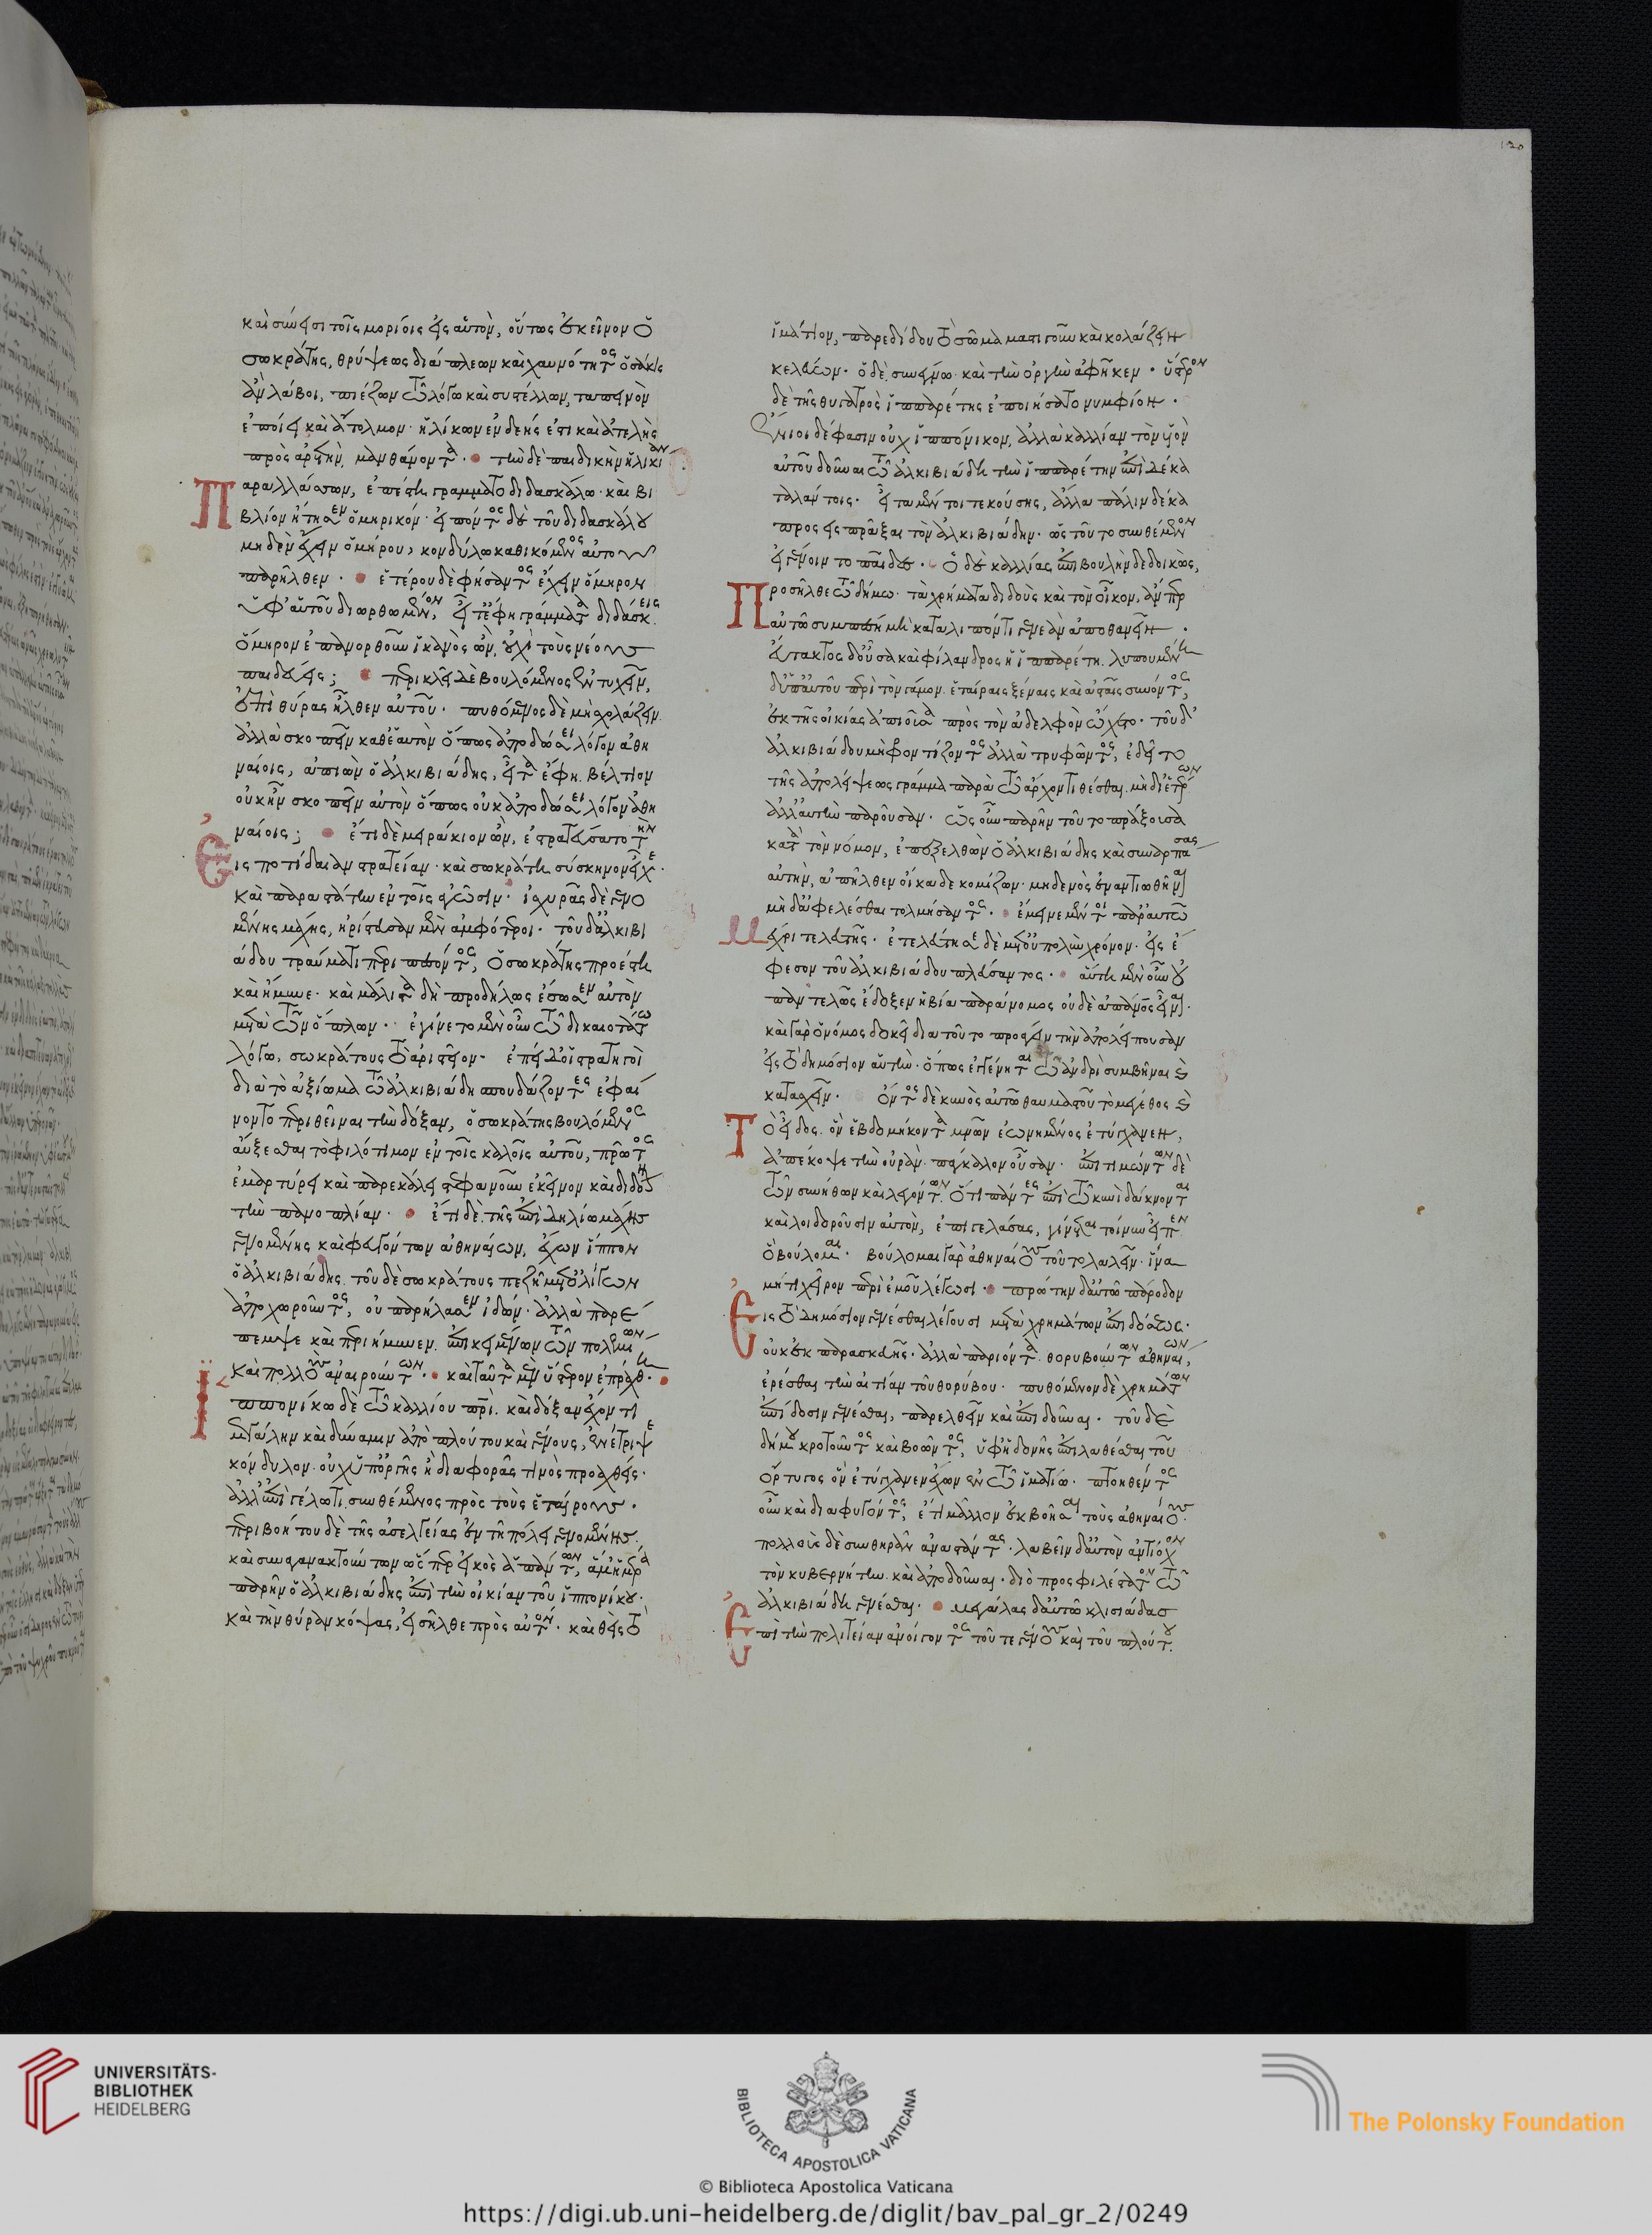 καὶ συνάγει τοῖς μορίοις εἰς αὑτὸν, οὕτως ἐκεῖνον ὁ
σωκράτης, θρύψεως διάπλεων καὶ χαυνότητος ὁσάκις
ἂν λάβοι, πιέζων τῶ λόγω καὶ συστέλλων, ταπεινὸν
ἐποίει καὶ ἄτολμον· ἡλίκων ἐνδεής ἐστι καὶ ἀτελὴς
πρὸς ἀρετὴν, μανθάνοντα· τὴν δὲ παιδικὴν ἡλικίαν
Παραλλάσσων, ἐπέστη γραμματοδιδασκάλω· καὶ βι
βλίον ἤτησεν ὁμηρικόν· εἰπόντος δὲ τοῦ διδασκάλου
μηδὲν ἔχειν ὁμήρου, κονδύλω καθικόμενος αὐτοῦ
παρῆλθεν· ἑτέρου δὲ φήσαντος ἔχειν ὅμηρον
ὑφ' αὑτοῦ διωρθωμένον, εἶτ' ἔφη γράμματα διδάσκεις
ὅμηρον ἐπανορθοῦν ἱκανὸς ὢν, οὐχὶ τοὺς νέους
παιδεύεις; περικλεῖ δὲ βουλόμενος ἐντυχεῖν,
ἐπὶ θύρας ἦλθεν αὐτοῦ· πυθόμενος δὲ μὴ σχολάζειν
ἀλλὰ σκοπεῖν καθ' ἑαυτὸν ὅπως ἀποδώσει λόγον ἀθη
ναίοις, ἀπιὼν ὁ ἀλκιβιάδης, εἶτα ἔφη. βέλτιον
οὐκ ἦν σκοπεῖν αὐτὸν ὅπως οὐκ ἀποδώσει λόγον ἀθη
ναίοις; ἔτι δὲ μειράκιον ὢν, ἐστρατεύσατο τὴν
Εἰς ποτίδαιαν στρατείαν· καὶ σωκράτη σύσκηνον εἶχε·
καὶ παραστάτην ἐν τοῖς ἀγῶσιν· ἰσχυρᾶς δὲ γενο
μένης μάχης, ἠρίστευσαν μὲν ἀμφότεροι· τοῦ δ' ἀλκιβι
άδου τραύματι περιπεσόντος, ὁ σωκράτης προέστη
καὶ ἤμυνε· καὶ μάλιστα δὴ προδήλως ἔσωσεν αὐτὸν
μετὰ τῶν ὅπλων· ἐγίνετο μὲν οὖν τῶ δικαιοτάτω
λόγω, σωκράτους τὸ ἀριστεῖον· ἐπεὶ δ' οἱ στρατηγοὶ
διὰ τὸ ἀξίωμα τῶ ἀλκιβιάδη σπουδάζοντες ἐφαί
νοντο περιθεῖναι τὴν δόξαν, ὁ σωκράτης βουλόμενος
αὔξεσθαι τὸ φιλότιμον ἐν τοῖς καλοῖς αὐτοῦ, πρῶτος
ἐμαρτύρει καὶ παρεκάλει στεφανοῦν ἐκεῖνον καὶ διδόναι
τὴν πανοπλίαν· ἔτι δὲ. τῆς ἐπὶ δηλίω μάχης
γενομένης καὶ φευγόντων ἀθηναίων, ἔχων ἵππον
ὁ ἀλκιβιάδης. τοῦ δὲ σωκράτους πεζῆ μετ' ὀλίγων
ἀποχωροῦντος, οὐ παρήλασεν ἰδών· ἀλλὰ παρέ
πεμψε καὶ περιήμυνεν. ἐπικειμένων τῶν πολεμίων
καὶ πολλοὺς ἀναιρούντων· καὶ ταῦτα μὲν ὕστερον ἐπράχθη·
Ἱππονίκω δὲ τῶ καλλίου πατρὶ. καὶ δόξαν ἔχοντι
μεγάλην καὶ δύναμιν ἀπὸ πλούτου καὶ γένους, ἐνέτριψε
κόνδυλον· οὐχ ὑπ' ὀργῆς ἢ διαφορᾶς τινὸς προαχθείς·
ἀλλ' ἐπὶ γέλωτι. συνθέμενος πρὸς τοὺς ἑταίρους·
περιβοήτου δὲ τῆς ἀσελγείας ἐν τῆ πόλει γενομένης.
καὶ συναγανακτούντων ὥσπερ εἰκὸς ἁπάντων, ἅμ' ἡμέρα
παρῆν ὁ ἀλκιβιάδης ἐπὶ τὴν οἰκίαν τοῦ ἱππονίκου·
καὶ τὴν θύραν κόψας, εἰσῆλθε πρὸς αὐτὸν· καὶ θεὶς τὸ
120
ἱμάτιον, παρεδίδου τὸ σῶμα μαστιγοῦν καὶ κολάζειν
κελεύων· ὁ δὲ συνέγνω· καὶ τὴν ὀργὴν ἀφῆκεν· ὕστερον
δὲ τῆς θυγατρὸς ἱππαρέτης ἐποιήσατο νυμφίον·
Ἔνιοι δέ φασιν οὐχ ἱππόνικον, ἀλλὰ καλλίαν τὸν υἱὸν
αὐτοῦ δοῦναι τῶ ἀλκιβιάδη τὴν ἱππαρέτην ἐπὶ δέκα
ταλάντοις· εἶτα μέντοι τεκούσης, ἄλλα πάλιν δέκα
προσεισπρᾶξαι τὸν ἀλκιβιάδην· ὡς τοῦτο συνθέμενον
εἰ γένοιντο παῖδες· ὁ δὲ καλλίας ἐπιβουλὴν δεδοικὼς,
Προσῆλθε τῶ δήμω· τὰ χρήματα διδοὺς καὶ τὸν οἶκον, ἄνπερ
αὐτῶ συμπέση μὴ καταλιπόντι γενεὰν ἀποθανεῖν·
εὔτακτος δ' οὖσα καὶ φίλανδρος ἡ ἱππαρέτη. λυπουμένη
δ' ὑπ' αὐτοῦ περὶ τὸν γάμον. ἑταίραις ξέναις καὶ ἀσταῖς συνόντος,
ἐκ τῆς οἰκίας ἀπιοῦσα πρὸς τὸν ἀδελφὸν ὤχετο· τοῦ δ'
ἀλκιβιάδου μὴ φροντίζοντος ἀλλὰ τρυφῶντος, ἔδει τὸ
τῆς ἀπολείψεως γράμμα παρὰ τῶ ἄρχοντι θέσθαι. μὴ δι' ἑτέρων
ἀλλ' αὐτὴν παροῦσαν· ὡς οὖν παρῆν τοῦτο πράξουσα
κατὰ τὸν νόμον, ἐπεξελθὼν ὁ ἀλκιβιάδης καὶ συναρπάσας
αὐτὴν, ἀπῆλθεν οἴκαδε κομίζων· μηδενὸς ἐναντιωθῆναι
μὴ δ' ἀφελέσθαι τολμήσαντος· ἔμεινε μέντοι παρ' αὐτῶ
Μέχρι τελευτῆς· ἐτελεύτησε δὲ μετ' οὐ πολὺν χρόνον· εἰς ἔ
φεσον τοῦ ἀλκιβιάδου πλεύσαντος· αὕτη μὲν οὖν οὐ
παντελῶς ἔδοξεν ἡ βία παράνομος οὐδὲ ἀπάνθρωπος εἶναι·
καὶ γὰρ ὁ νόμος δοκεῖ διὰ τοῦτο προάγειν τὴν ἀπολείπουσαν
εἰς τὸ δημόσιον αὐτὴν· ὅπως ἐγγένηται τῶ ἀνδρὶ συμβῆναι καὶ
κατασχεῖν· ὄντος δὲ κυνὸς αὐτῶ θαυμαστοῦ τὸ μέγεθος καὶ
Τὸ εἶδος. ὃν ἑβδομήκοντα μνῶν ἐωνημένος ἐτύγχανεν,
ἀπέκοψε τὴν οὐρὰν. πάγκαλον οὖσαν· ἐπιτιμώντων δὲ
τῶν συνήθων καὶ λεγόντων. ὅτι πάντες ἐπὶ τῶ κυνὶ δάκνονται
καὶ λοιδοροῦσιν αὐτὸν, ἐπιγελάσας, γίνεται τοίνυν εἶπεν
ὃ βούλομαι· βούλομαι γὰρ ἀθηναίους τοῦτο λαλεῖν· ἵνα
μή τι χεῖρον περὶ ἐμοῦ λέγωσι· πρώτην δ' αὐτῶ πάροδον
Εἰς τὸ δημόσιον γενέσθαι λέγουσι μετὰ χρημάτων ἐπιδόσεως·
οὐκ ἐκ παρασκευῆς· ἀλλὰ παριόντα. θορυβούντων ἀθηναίων,
ἐρέσθαι τὴν αἰτίαν τοῦ θορύβου· πυθόμενον δὲ χρημάτων
ἐπίδοσιν γενέσθαι, παρελθεῖν καὶ ἐπιδοῦναι· τοῦ δὲ
δήμου κροτοῦντος καὶ βοῶντος, ὑφ' ἡδονῆς ἐπιλαθέσθαι τοῦ
ὄρτυγος ὃν ἐτύγχανεν ἔχων ἐν τῶ ἱματίω· πτοηθέντος
οὖν καὶ διαφυγόντος, ἔτι μᾶλλον ἐκβοῆσαι τοὺς ἀθηναίους·
πολλοὺς δὲ συνθηρᾶν ἀναστάντας· λαβεῖν δ' αὐτὸν ἀντίοχον
τὸν κυβερνήτην. καὶ ἀποδοῦναι· διὸ προσφιλέστατον τῶ
ἀλκιβιάδη γενέσθαι· μεγάλας δ' αὐτῶ κλισιάδας
Ἐπὶ τὴν πολιτείαν ἀνοίγοντος τοῦ τε γένους καὶ τοῦ πλούτου
UNIVERSITÄTS-
BIBLIOTHEK
HEIDELBERG
BIBLIOTECA APOSTOLICA VATICANA
The Polonsky Foundation
© Biblioteca Apostolica Vaticana
https://digi.ub.uni-heidelberg.de/diglit/bav_pal_gr_2/0249